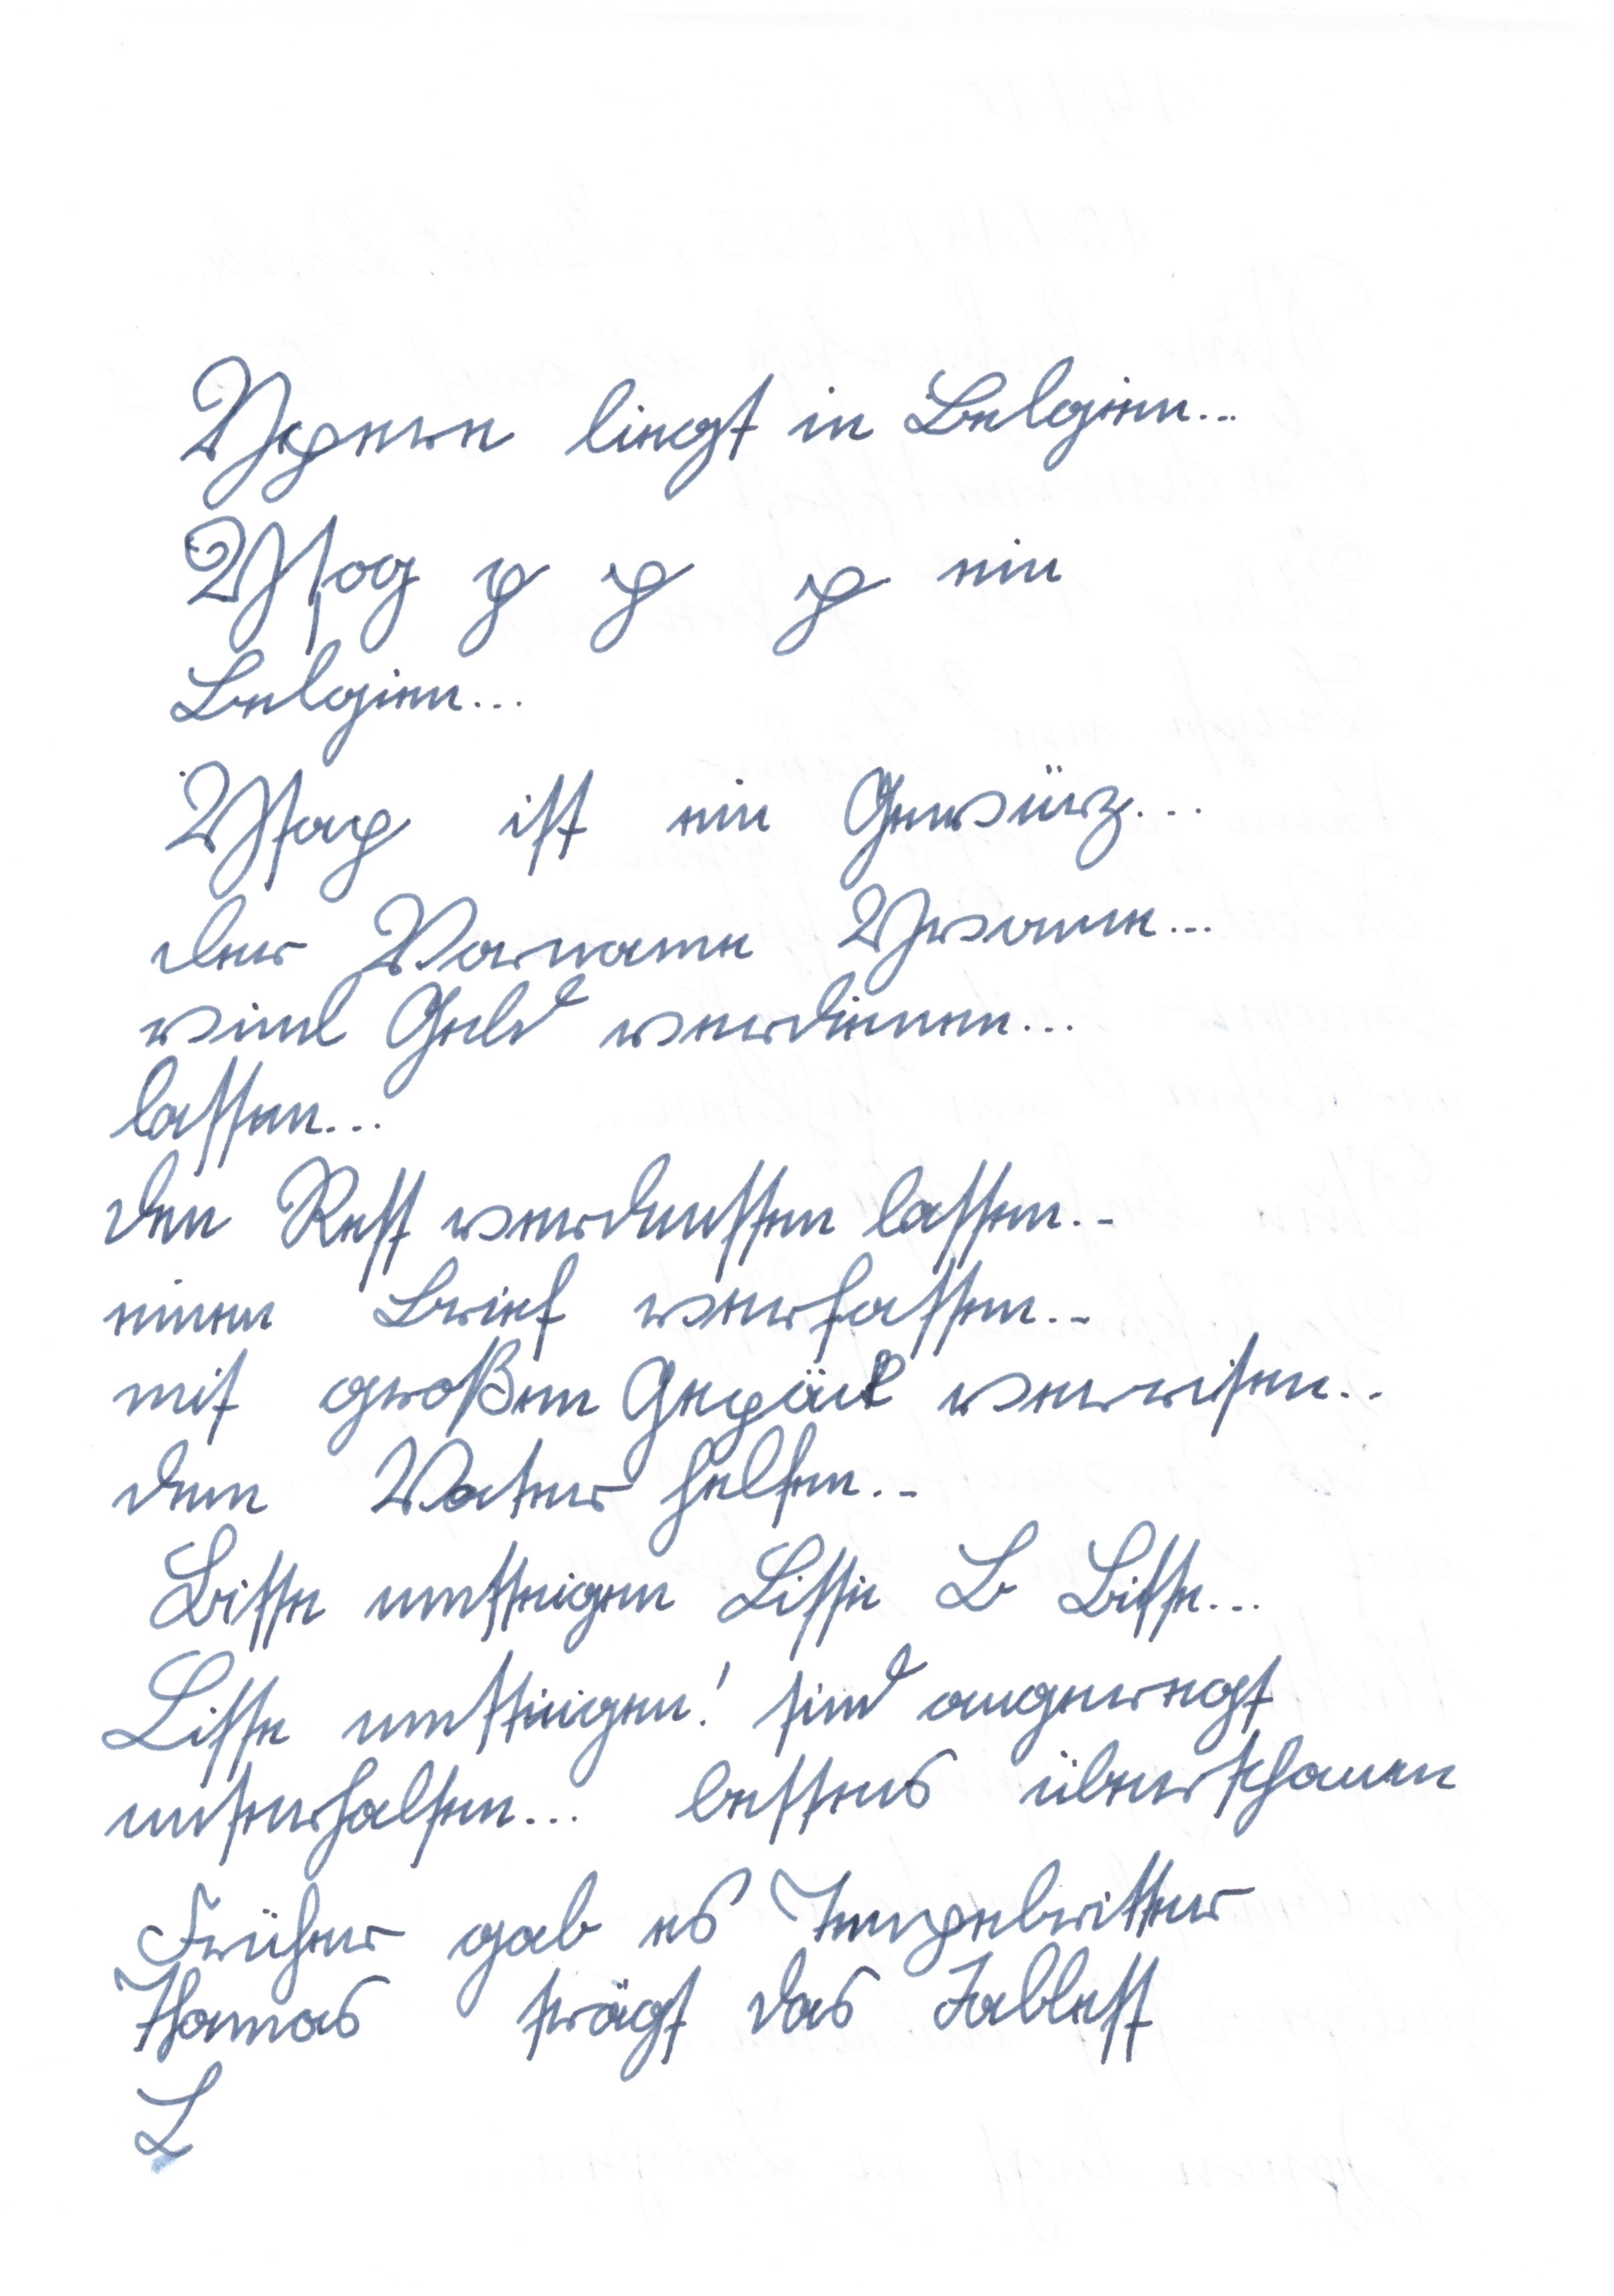 Ypern liegt in Belgien...
Ysog p p p ein
Belgien...
Ysop ist ein Gewürz...
der Vorname Yvonne...
viel Geld verdienen...
lassen...
den Rest verdunsten lassen..
einen Brief verfassen..
mit großem Gepäck verreisen..
dem Vater helfen..
Bitte umsteigen Bitte B Bitte...
Bitte umsteigen! sind angeregt
unterhalten... bestens überschauen
Früher gab es Tempelritter
Thomas trägt das Tablett
L